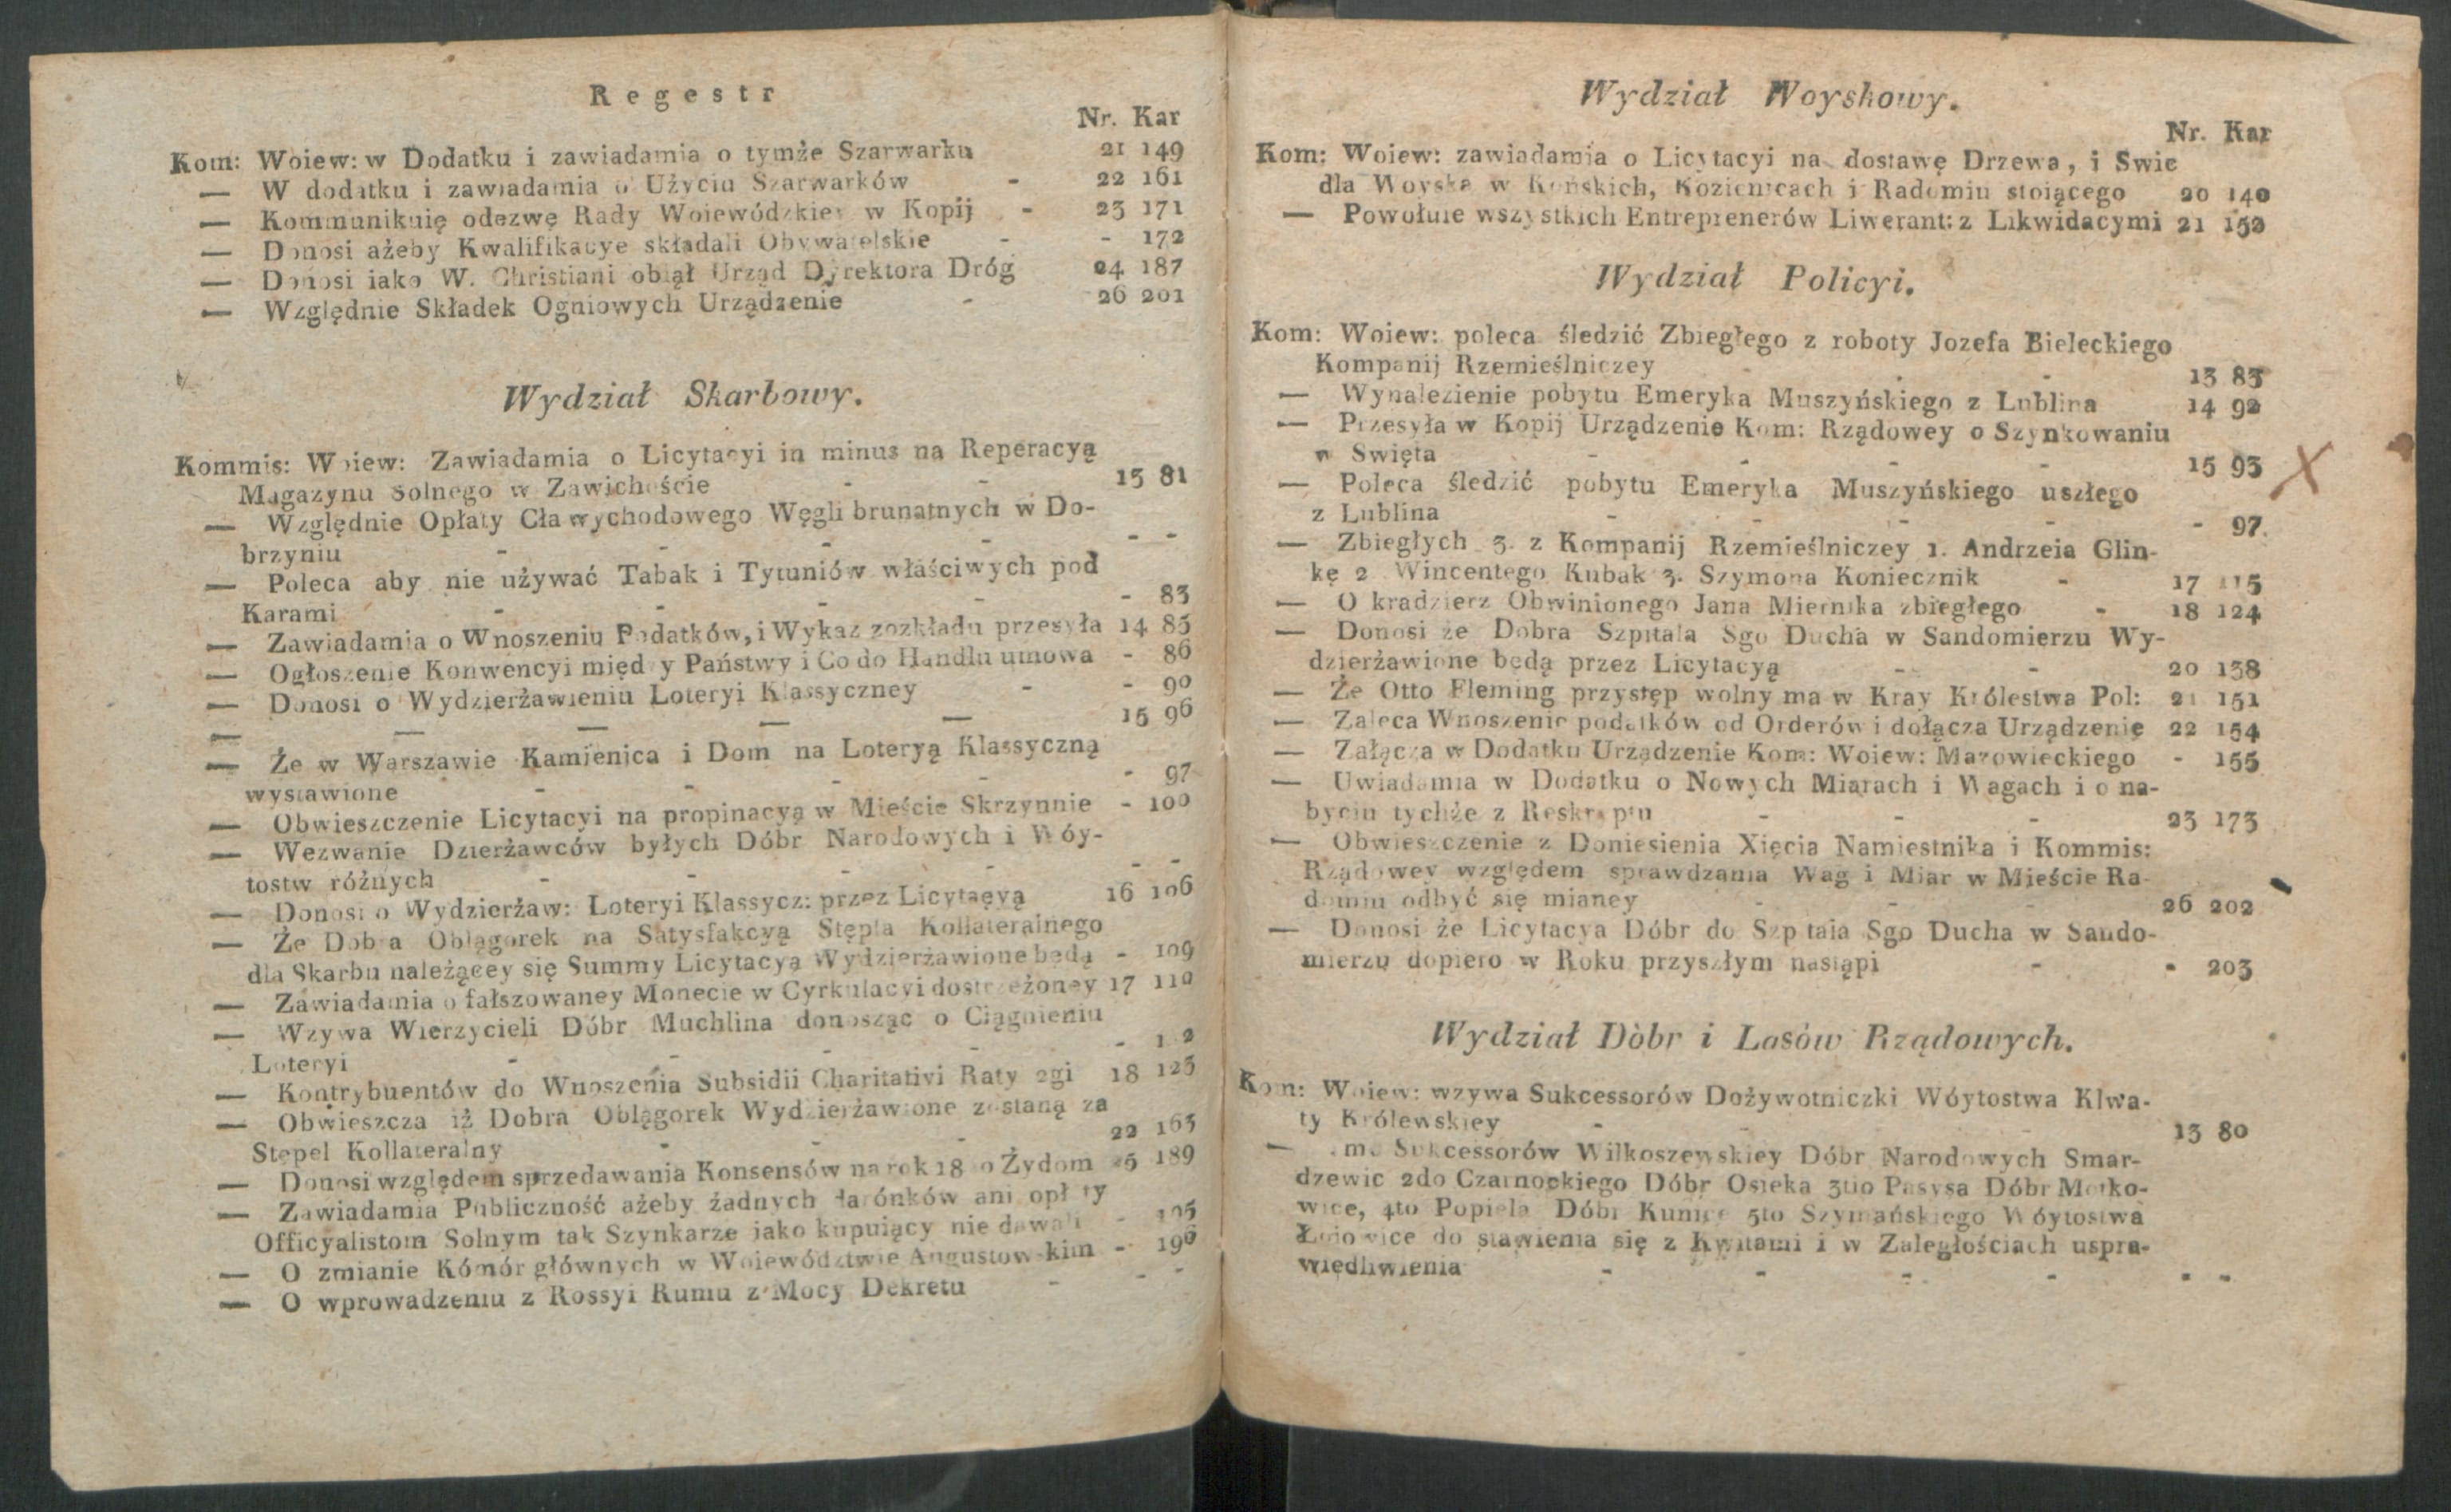 Regestr
Nr. Kar
Kom: Woiew: w Dodatku i zawiadamia o tymże Szarwarku 21 149
— W dodatku i zawiadamia o Użyciu Szarwarków - 22 161
— Kommunikuię odezwę Rady Woiewódzkiey w Kopij - 23 171
— Donosi ażeby Kwalifikacye składali Obywatelskie - - 172
— Donosi iako W. Christiani obiął Urząd Dyrektora Dróg 24 187
— Względnie Składek Ogniowych Urządzenie - 26 201
Wydział Skarbowy.
Kommis: Woiew: Zawiadamia o Licytacyi in minus na Reperacyą
Magazynu Solnego w Zawichoście - - 13 81
— Względnie Opłaty Cła wychodowego Węgli brunatnych w Do-
brzyniu - - - - - -
— Poleca aby nie używać Tabak i Tytuniów właściwych pod
Karami - - - - - 83
— Zawiadamia o Wnoszeniu Podatków, i Wykaz zozkładu przesyła 14 85
— Ogłoszenie Konwencyi między Państwy i Co do Handlu umowa - 86
— Donosi o Wydzierżawieniu Loteryi Klassyczney - - 90
— — — — 15 96
— Że w Warszawie Kamienica i Dom na Loteryą Klassyczną
wystawione - - - - - 97
— Obwieszczenie Licytacyi na propinacyą w Mieście Skrzynnie - 100
— Wezwanie Dzierżawców byłych Dóbr Narodowych i Wóy-
tostw różnych - - - - - -
— Donosi o Wydzierżaw: Loteryi Klassycz: przez Licytacyą 16 106
— Że Dobra Oblągorek na Satysfakcyą Stępla Kollateralnego
dla Skarbu należącey się Summy Licytacyą Wydzierżawione będą - 109
— Zawiadamia o fałszowaney Monecie w Cyrkulacyi dostrzeżoney 17 110
— Wzywa Wierzycieli Dóbr Muchlina donosząc o Ciągnieniu
Loteryi - - - - -
— Kontrybuentów do Wnoszenia Subsidii Charitativi Raty 2gi 18 123
— Obwieszcza iż Dobra Oblągorek Wydzierżawione zostaną za
Stępel Kollateralny - - - 22 163
— Donosi względem sprzedawania Konsensów na rok Żydom 189
— Zawiadamia Publiczność ażeby żadnych ani opłaty
Officyalistom Solnym tak Szynkarze jako kupuiący nie dawali - 195
— O zmianie Kómór głównych w Woiewództwie Augustowskim - 196
— O wprowadzeniu z Rossyi Rumu z Mocy Dekretu - - -
Wydział Woyskowy.
Nr. Kar
Kom: Woiew: zawiadamia o Licytacyi na dostawę Drzewa, i Swie
dla Woyska w Końskich, Kozienicach i Radomiu stoiącego 20 140
— Powołuie wszystkich Entreprenerów Liwerant: z Likwidacymi 21 152
Wydział Policyi.
Kom: Woiew: poleca śledzić Zbiegłego z roboty Jozefa Bieleckiego
Kompanij Rzemieślniczey - - - 13 83
— Wynalezienie pobytu Emeryka Muszyńskiego z Lublina 14 92
— Przesyła w Kopij Urządzenie Kom: Rządowey o Szynkowaniu
w Swięta - - - - 15 93
— Poleca śledzić pobytu Emeryka Muszyńskiego uszłego
z Lublina - - - - - 97
— Zbiegłych 3. z Kompanij Rzemieślniczey 1. Andrzeia Glin-
kę 2 Wincentego Kubak 3. Szymona Koniecznik - 17 115
— O kradzierz Obwinionego Jana Miernika zbiegłego - 18 124
— Donosi że Dobra Szpitala Sgo Ducha w Sandomierzu Wy-
dzierżawione będą przez Licytacyą - - 20 138
— Że Otto Fleming przystęp wolny ma w Kray Królestwa Pol: 21 151
— Zaleca Wnoszenie podatków od Orderów i dołącza Urządzenie 22 154
— Załącza w Dodatku Urządzenie Kom: Woiew: Mazowieckiego - 155
— Uwiadamia w Dodatku o Nowych Miarach i Wagach i o na-
byciu tychże z Reskryptu - - - 23 173
— Obwieszczenie z Doniesienia Xięcia Namiestnika i Kommis:
Rządowey względem sprawdzania Wag i Miar w Mieście Ra-
domiu odbyć się mianey - - - 26 202
— Donosi że Licytacya Dóbr do Szpitala Sgo Ducha w Sando-
mierzu dopiero w Roku przyszłym nastąpi - - 203
Wydział Dòbr i Lasòw Rządowych.
Kom: Woiew: wzywa Sukcessorów Dożywotniczki Wóytostwa Klwa-
ty Królewskiey - - - 13 80
— Sukcessorów Wilkoszewskiey Dóbr Narodowych Smar-
dzewic 2do Czarnockiego Dóbr Osieka 3tio Pasysa Dóbr Motko-
wice, 4to Popiela Dóbr Kunice 5to Szymańskiego Wóytostwa
do stawienia się z Kwitami i w Zaległościach uspra-
wiedliwienia - - - - - -